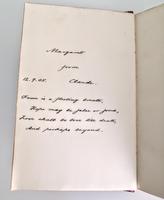 Margaret
from
12.9.05. Claude.
is a fleeting breath,
Hope may be false or fond,
Love shall be love till death,
And perhaps beyond.